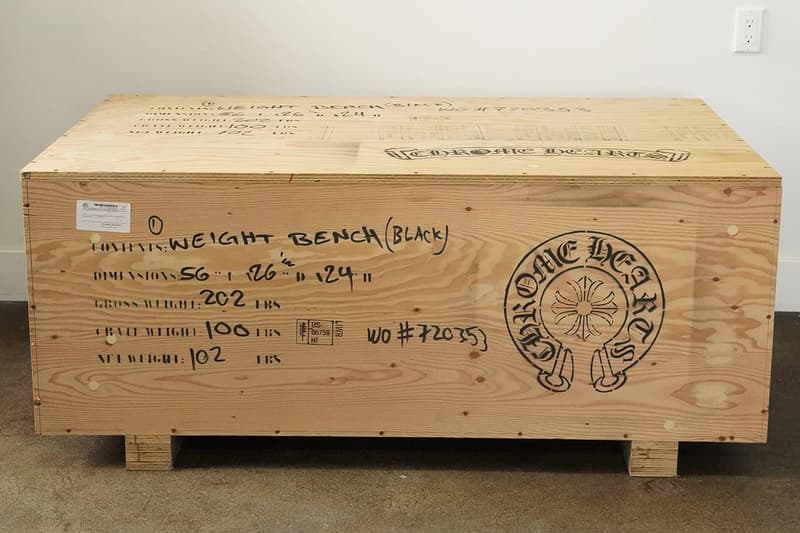 ① WEIGHT BENCH (BLACK) WO #720353
CONTENTS:
DIMENSIONS: 56" L x 26" D x 24" H
GROSS WEIGHT: 202 LBS
CRATE WEIGHT: 100 LBS
NET WEIGHT: 102 LBS
CHROME HEARTS
①
CONTENTS: WEIGHT BENCH (BLACK)
DIMENSIONS: 56" L x 26" W D x 24" H
GROSS WEIGHT: 202 LBS
CRATE WEIGHT: 100 LBS
NET WEIGHT: 102 LBS
WO #720353
CHROME HEARTS